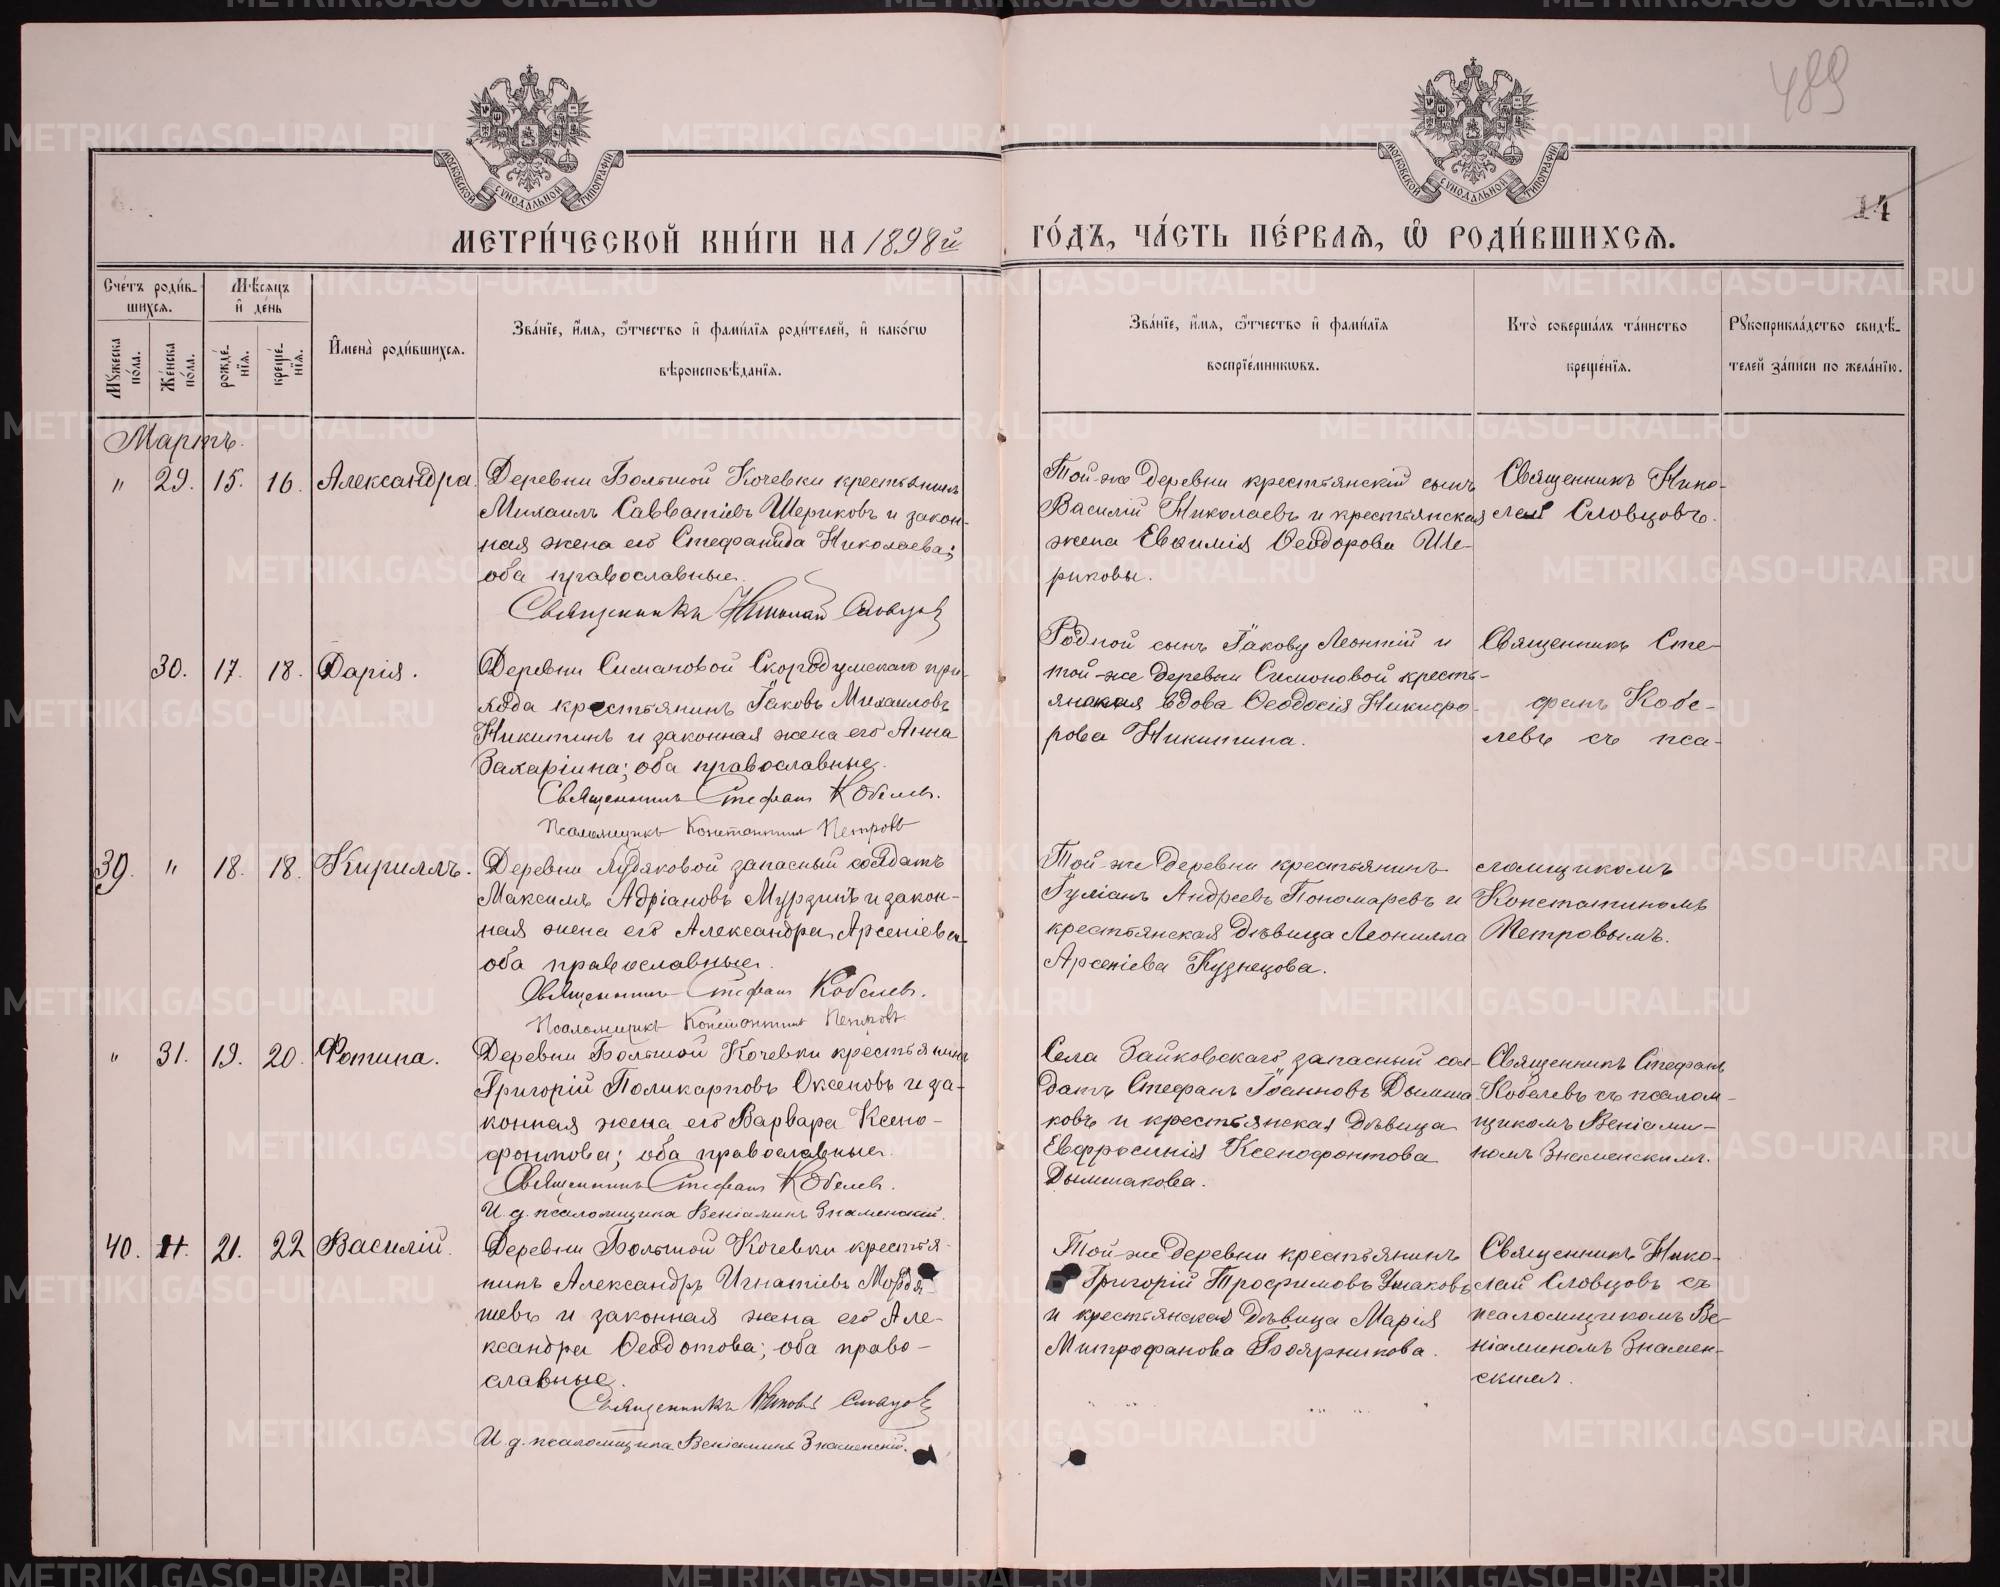 489
14
МОСКОВСКОЙ СУНОДАЛЬНОЙ ТИПОГРАФІИ
МОСКОВСКОЙ СУНОДАЛЬНОЙ ТИПОГРАФІИ
МЕТРИ́ЧЕСКОЙ КНИ́ГИ НА 1898й ГО́ДЪ, ЧА́СТЬ ПЕ́РВАѦ, Ѽ РОДИ́ВШИХСѦ.
Сче́тъ роди́в-
шихсѧ.
Мѣ́сяцъ
и҆ де́нь
Мꙋжеска по́ла.
Же́нска по́ла.
рожде́нїѧ.
креще́нїѧ.
И҆мена̀ роди́вшихсѧ.
Зва́нїе, и҆́мѧ, ѻ҆́тчество и҆ фами́лїѧ роди́телей, и҆ како́гѡ
вѣроисповѣ́данїѧ.
Зва́нїе, и҆́мѧ, ѻ҆́тчество и҆ фами́лїѧ
воспрїе́мникѡвъ.
Кто̀ соверша́лъ та́инство
креще́нїѧ.
Рꙋкоприкла́дство свидѣ́-
телей за́писи по жела́нїю.
Мартъ.
" 29. 15. 16. Александра.
Деревни Большой Кочевки крестьянинъ
Михаилъ Савватіевъ Шериковъ и закон-
ная жена его Стефанида Николаева;
оба православные.
Священникъ Николай Словцовъ
Той-же деревни крестьянскій сынъ
Василій Николаевъ и крестьянская
жена Евѳимія Ѳеодорова Ше-
риковы.
Священникъ Нико-
лай Словцовъ.
30. 17. 18. Дарія.
Деревни Симановой Скородумскаго при-
хода крестьянинъ Іаковъ Михаиловъ
Никитинъ и законная жена его Анна
Захаріина; оба православные.
Священникъ Стефанъ Кобелевъ.
Псаломщикъ Константинъ Петровъ
Родной сынъ Іакову Леонтій и
той-же деревни Симоновой кресть-
янская вдова Ѳеодосія Никифо-
рова Никитина.
Священникъ Сте-
фанъ Кобе-
левъ съ пса-
39. " 18. 18. Кириллъ.
Деревни Мудяковой запасный солдатъ
Максимъ Адріановъ Мурзинъ и закон-
ная жена его Александра Арсеніева
оба православные.
Священникъ Стефанъ Кобелевъ.
Псаломщикъ Константинъ Петровъ.
Той-же деревни крестьянинъ
Іуліанъ Андреевъ Пономаревъ и
крестьянская дѣвица Леонилла
Арсеніева Кузнецова.
ломщикомъ
Константиномъ
Петровымъ.
" 31. 19. 20. Фотина.
Деревни Большой Кочевки крестьянинъ
Григорій Поликарповъ Оксеновъ и за-
конная жена его Варвара Ксено-
фонтова; оба православные.
Священникъ Стефанъ Кобелевъ.
И. д. псаломщика Веніаминъ Знаменскій.
Села Зайковскаго запасный сол-
датъ Стефанъ Іоанновъ Дымша-
ковъ и крестьянская дѣвица
Евфросинія Ксенофонтова
Дымшакова.
Священникъ Стефанъ
Кобелевъ съ псалом-
щикомъ Веніами-
номъ Знаменскимъ.
40. 21. 22 Василій.
Деревни Большой Кочевки крестья-
нинъ Александръ Игнатіевъ Мордя-
шевъ и законная жена его Але-
ксандра Ѳеодотова; оба право-
славные.
Священникъ Николай Словцовъ
И. д. псаломщика Веніаминъ Знаменскій.
Той-же деревни крестьянинъ
Григорій Трофимовъ Ушаковъ
и крестьянская дѣвица Марія
Митрофанова Бояркикова.
Священникъ Нико-
лай Словцовъ съ
псаломщикомъ Ве-
ніаминомъ Знамен-
скимъ.
METRIKI.GASO-URAL.RU